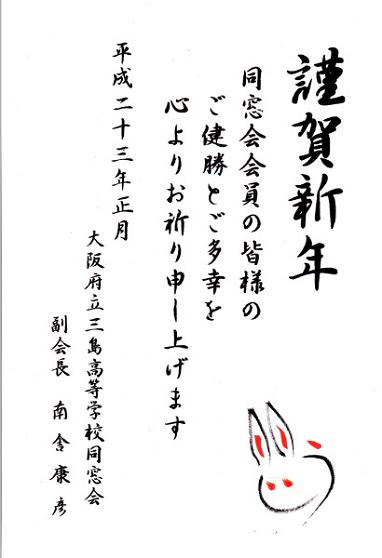 謹賀新年
同窓会会員の皆様の
ご健勝とご多幸を
心よりお祈り申し上げます
平成二十三年正月
大阪府立三島高等学校同窓会
副会長 南舎康彦